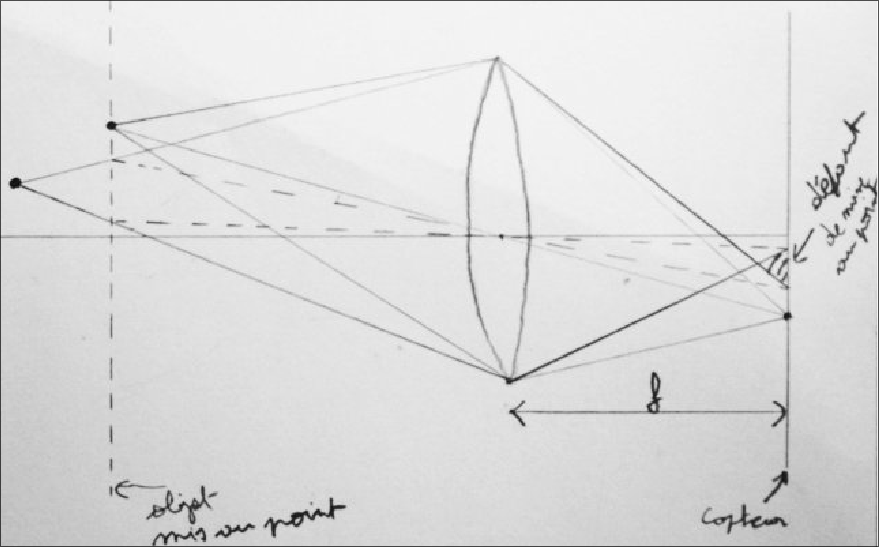 défaut
de mise
au point
f
objet
mis au point
Capteur